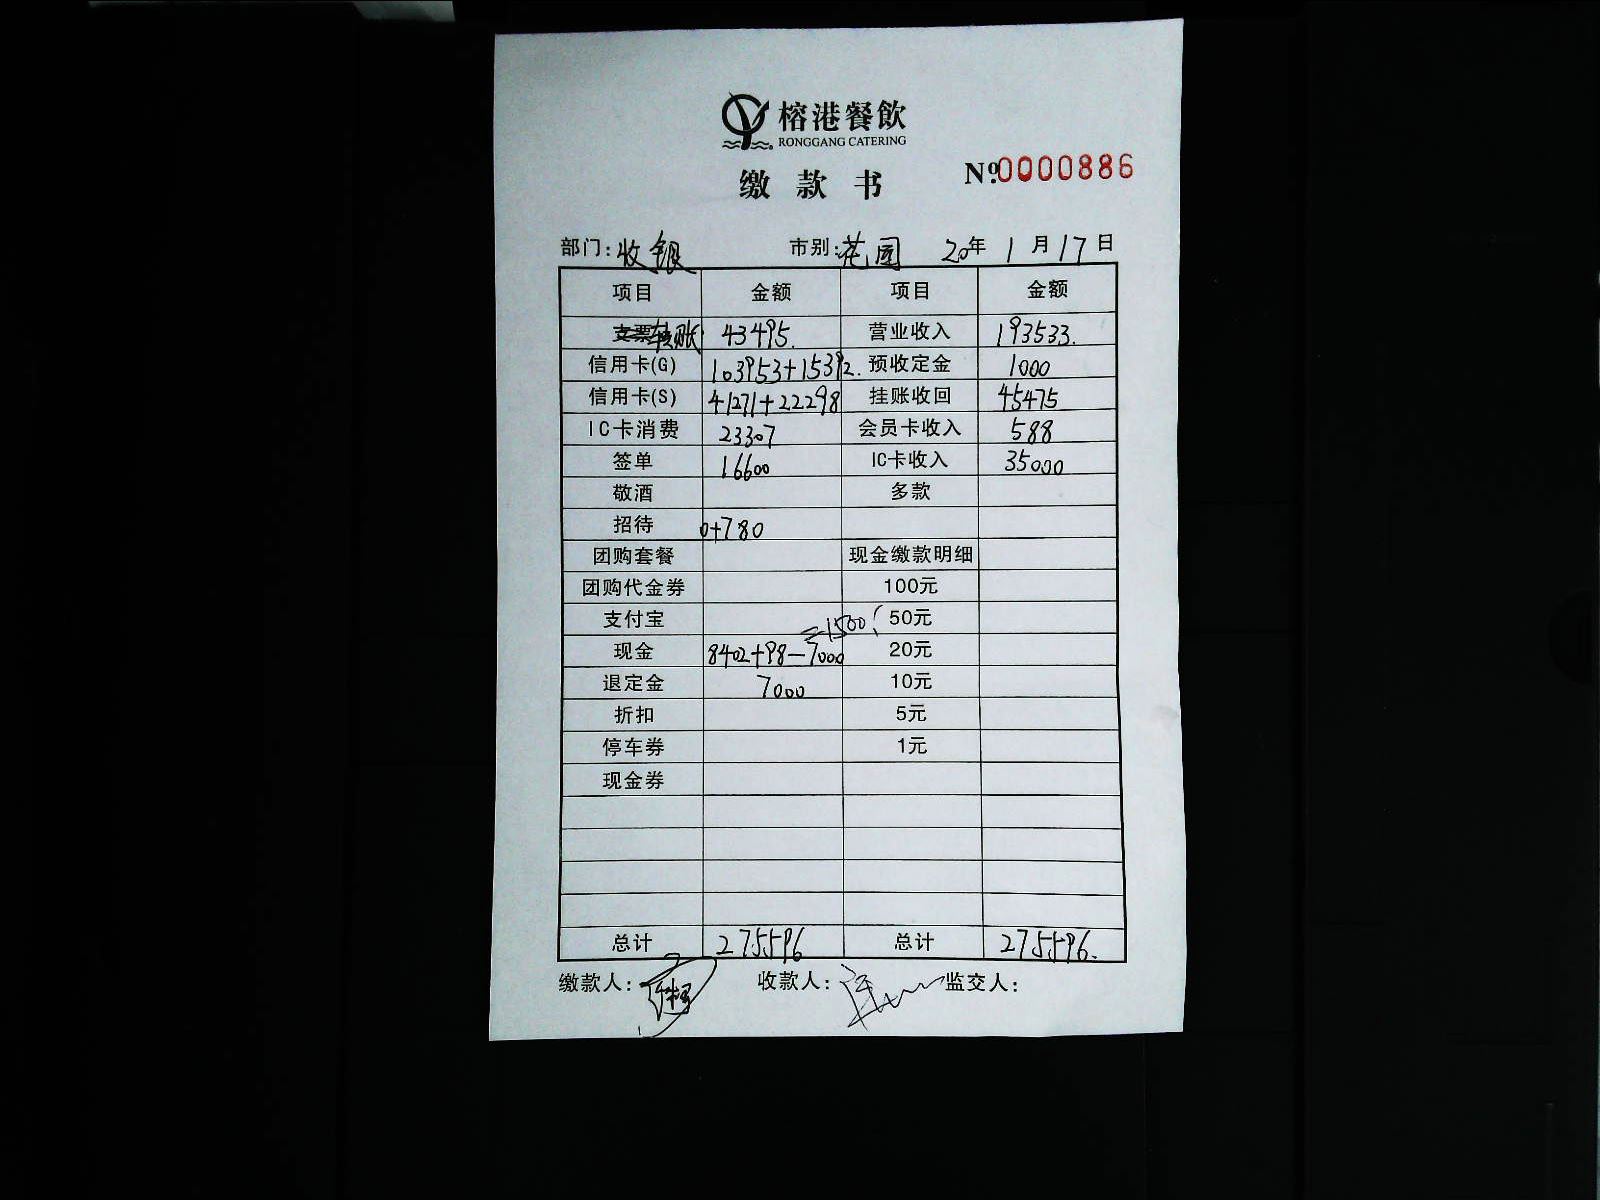 榕港餐飲
RONGGANG CATERING
缴款书
№0000886
部门:收银 市别:花园 20年1月17日
项目 金额 项目 金额
转账 43495. 营业收入 193533.
信用卡(G) 103953+15392. 预收定金 1000
信用卡(S) 41271+22298 挂账收回 45475
IC卡消费 23307 会员卡收入 588
签单 16600 IC卡收入 35000
敬酒 多款
招待 0+780
团购套餐 现金缴款明细
团购代金券 100元
支付宝 50元
=1500
现金 8402+98-7000 20元
退定金 7000 10元
折扣 5元
停车券 1元
现金券
总计 275596 总计 275596.
缴款人: 收款人: 监交人: